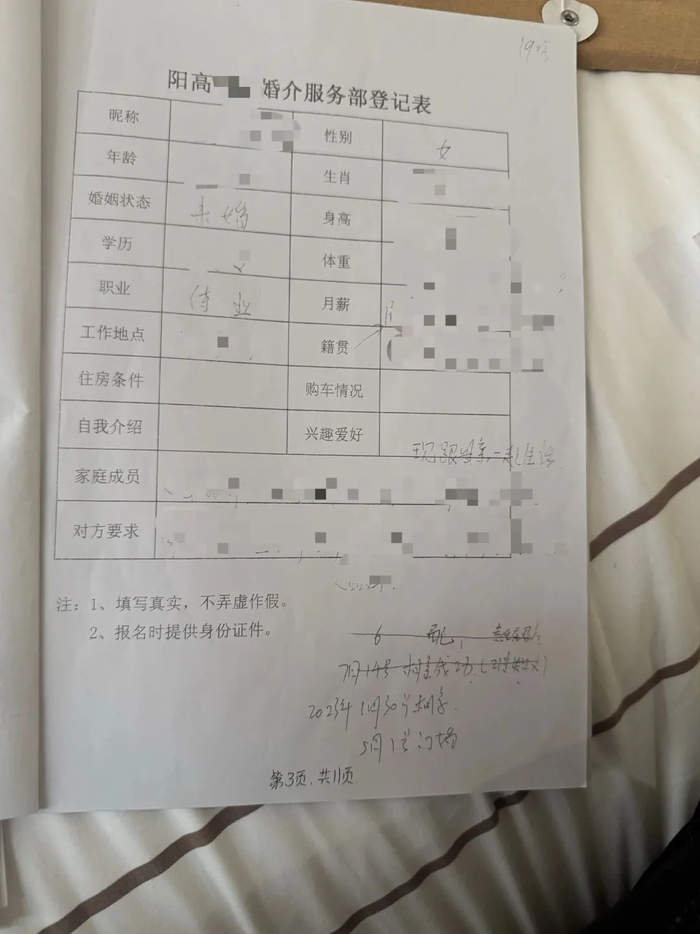 阳高 婚介服务部登记表
昵称 性别 女
年龄 生肖
婚姻状态 未婚 身高
学历 体重
职业 待业 月薪
工作地点 籍贯
住房条件 购车情况
自我介绍 兴趣爱好
现跟母亲一起生活
家庭成员
对方要求
注：1、填写真实，不弄虚作假。
2、报名时提供身份证件。
6
7月14号 相亲成功
2023年1月30号相亲.
5月1号订婚
第3页.共11页.